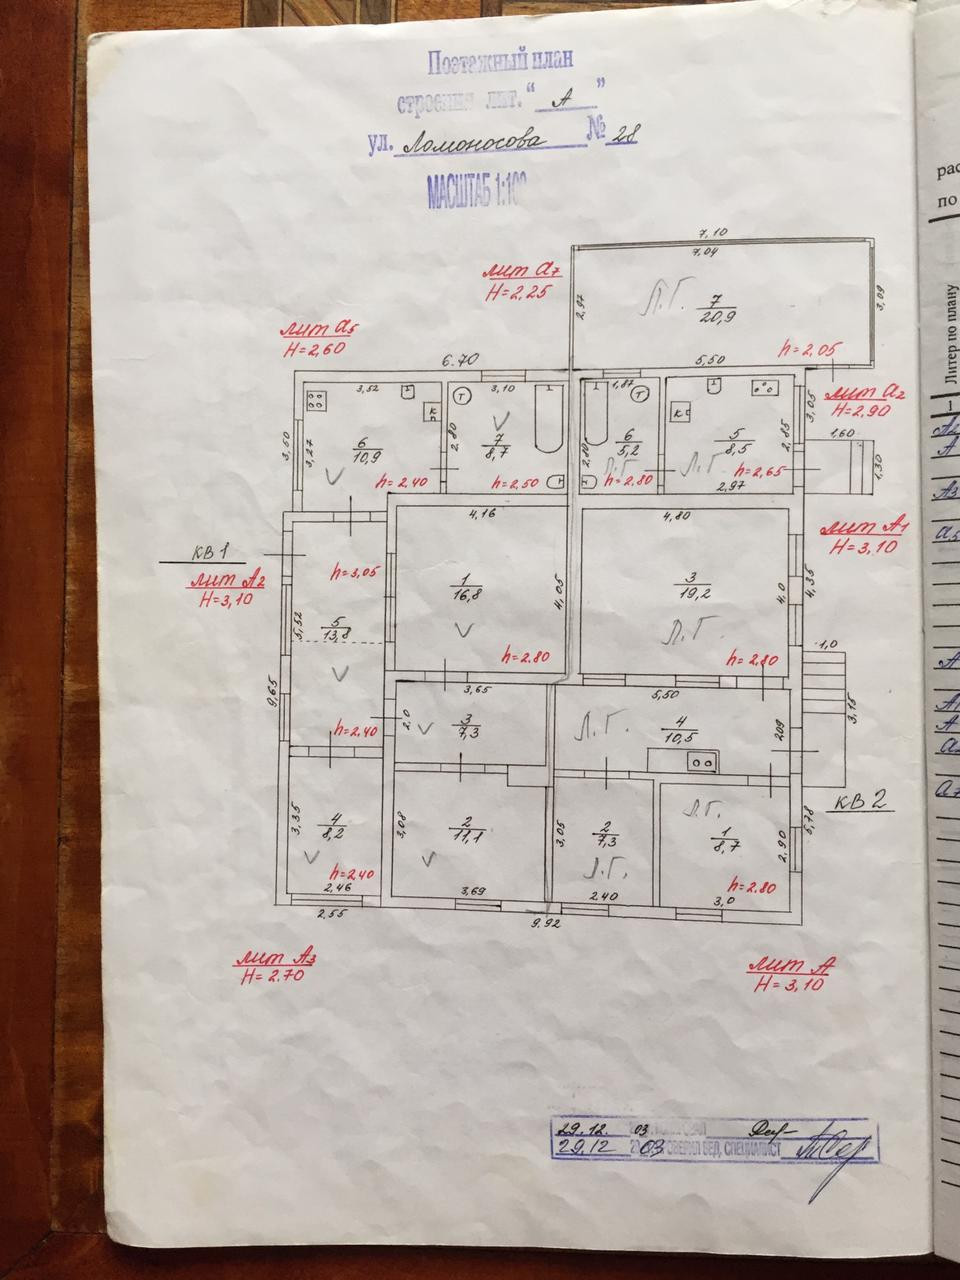 Поэтажный план
строения лит. "А"
ул. Ломоносова № 28
МАСШТАБ 1:100
7,10
7,04
лит а7
H=2,25
2,97
Л.Г.
7
20,9
3,09
лит а5
H=2,60
6.70
5,50
h=2.05
3,52
3,10
1,87
лит а2
H=2,90
3,05
Т
Т
3,50
3,27
6
10,9
2,80
7
8,7
6
5,2
5
8,5
2,85
1,60
1,30
Л.Г
Л.Г.
h=2.40
h=2.50
h=2.80
h=2,65
2,97
4,16
4,80
КВ 1
лит А2
H=3,10
h=3,05
1
16,8
4,05
3
19,2
4,0
4,35
лит А1
H=3,10
5,52
5
13,8
Л.Г
h=2.80
h=2.80
1,0
9,65
3,65
5,50
3,15
2,0
3
7,3
Л.Г.
4
10,5
2,09
h=2.40
КВ 2
3,35
4
8,2
3,08
2
11,1
3,05
2
7,3
Л.Г.
Л.Г.
1
8,7
2,90
5,78
h=2.40
h=2.80
2,46
3,69
2,40
3,0
2,55
9.92
лит А3
H=2.70
лит А
H=3,10
29.12. 03
29.12 03 СВЕРИЛ ВЕД. СПЕЦИАЛИСТ
рас
по
Литер по плану
1